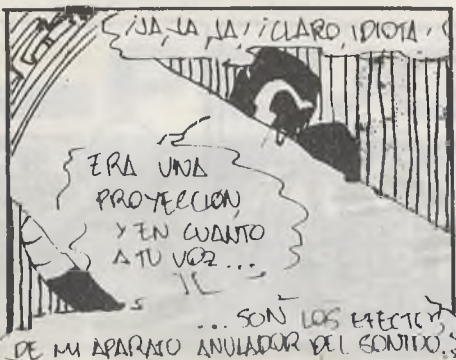 ¡JA, JA, JA! ¡CLARO, IDIOTA!
ERA UNA
PROYECCION,
Y EN CUANTO
A TU VOZ...
... SON LOS EFECTOS
DE MI APARATO ANULADOR DEL SONIDO...